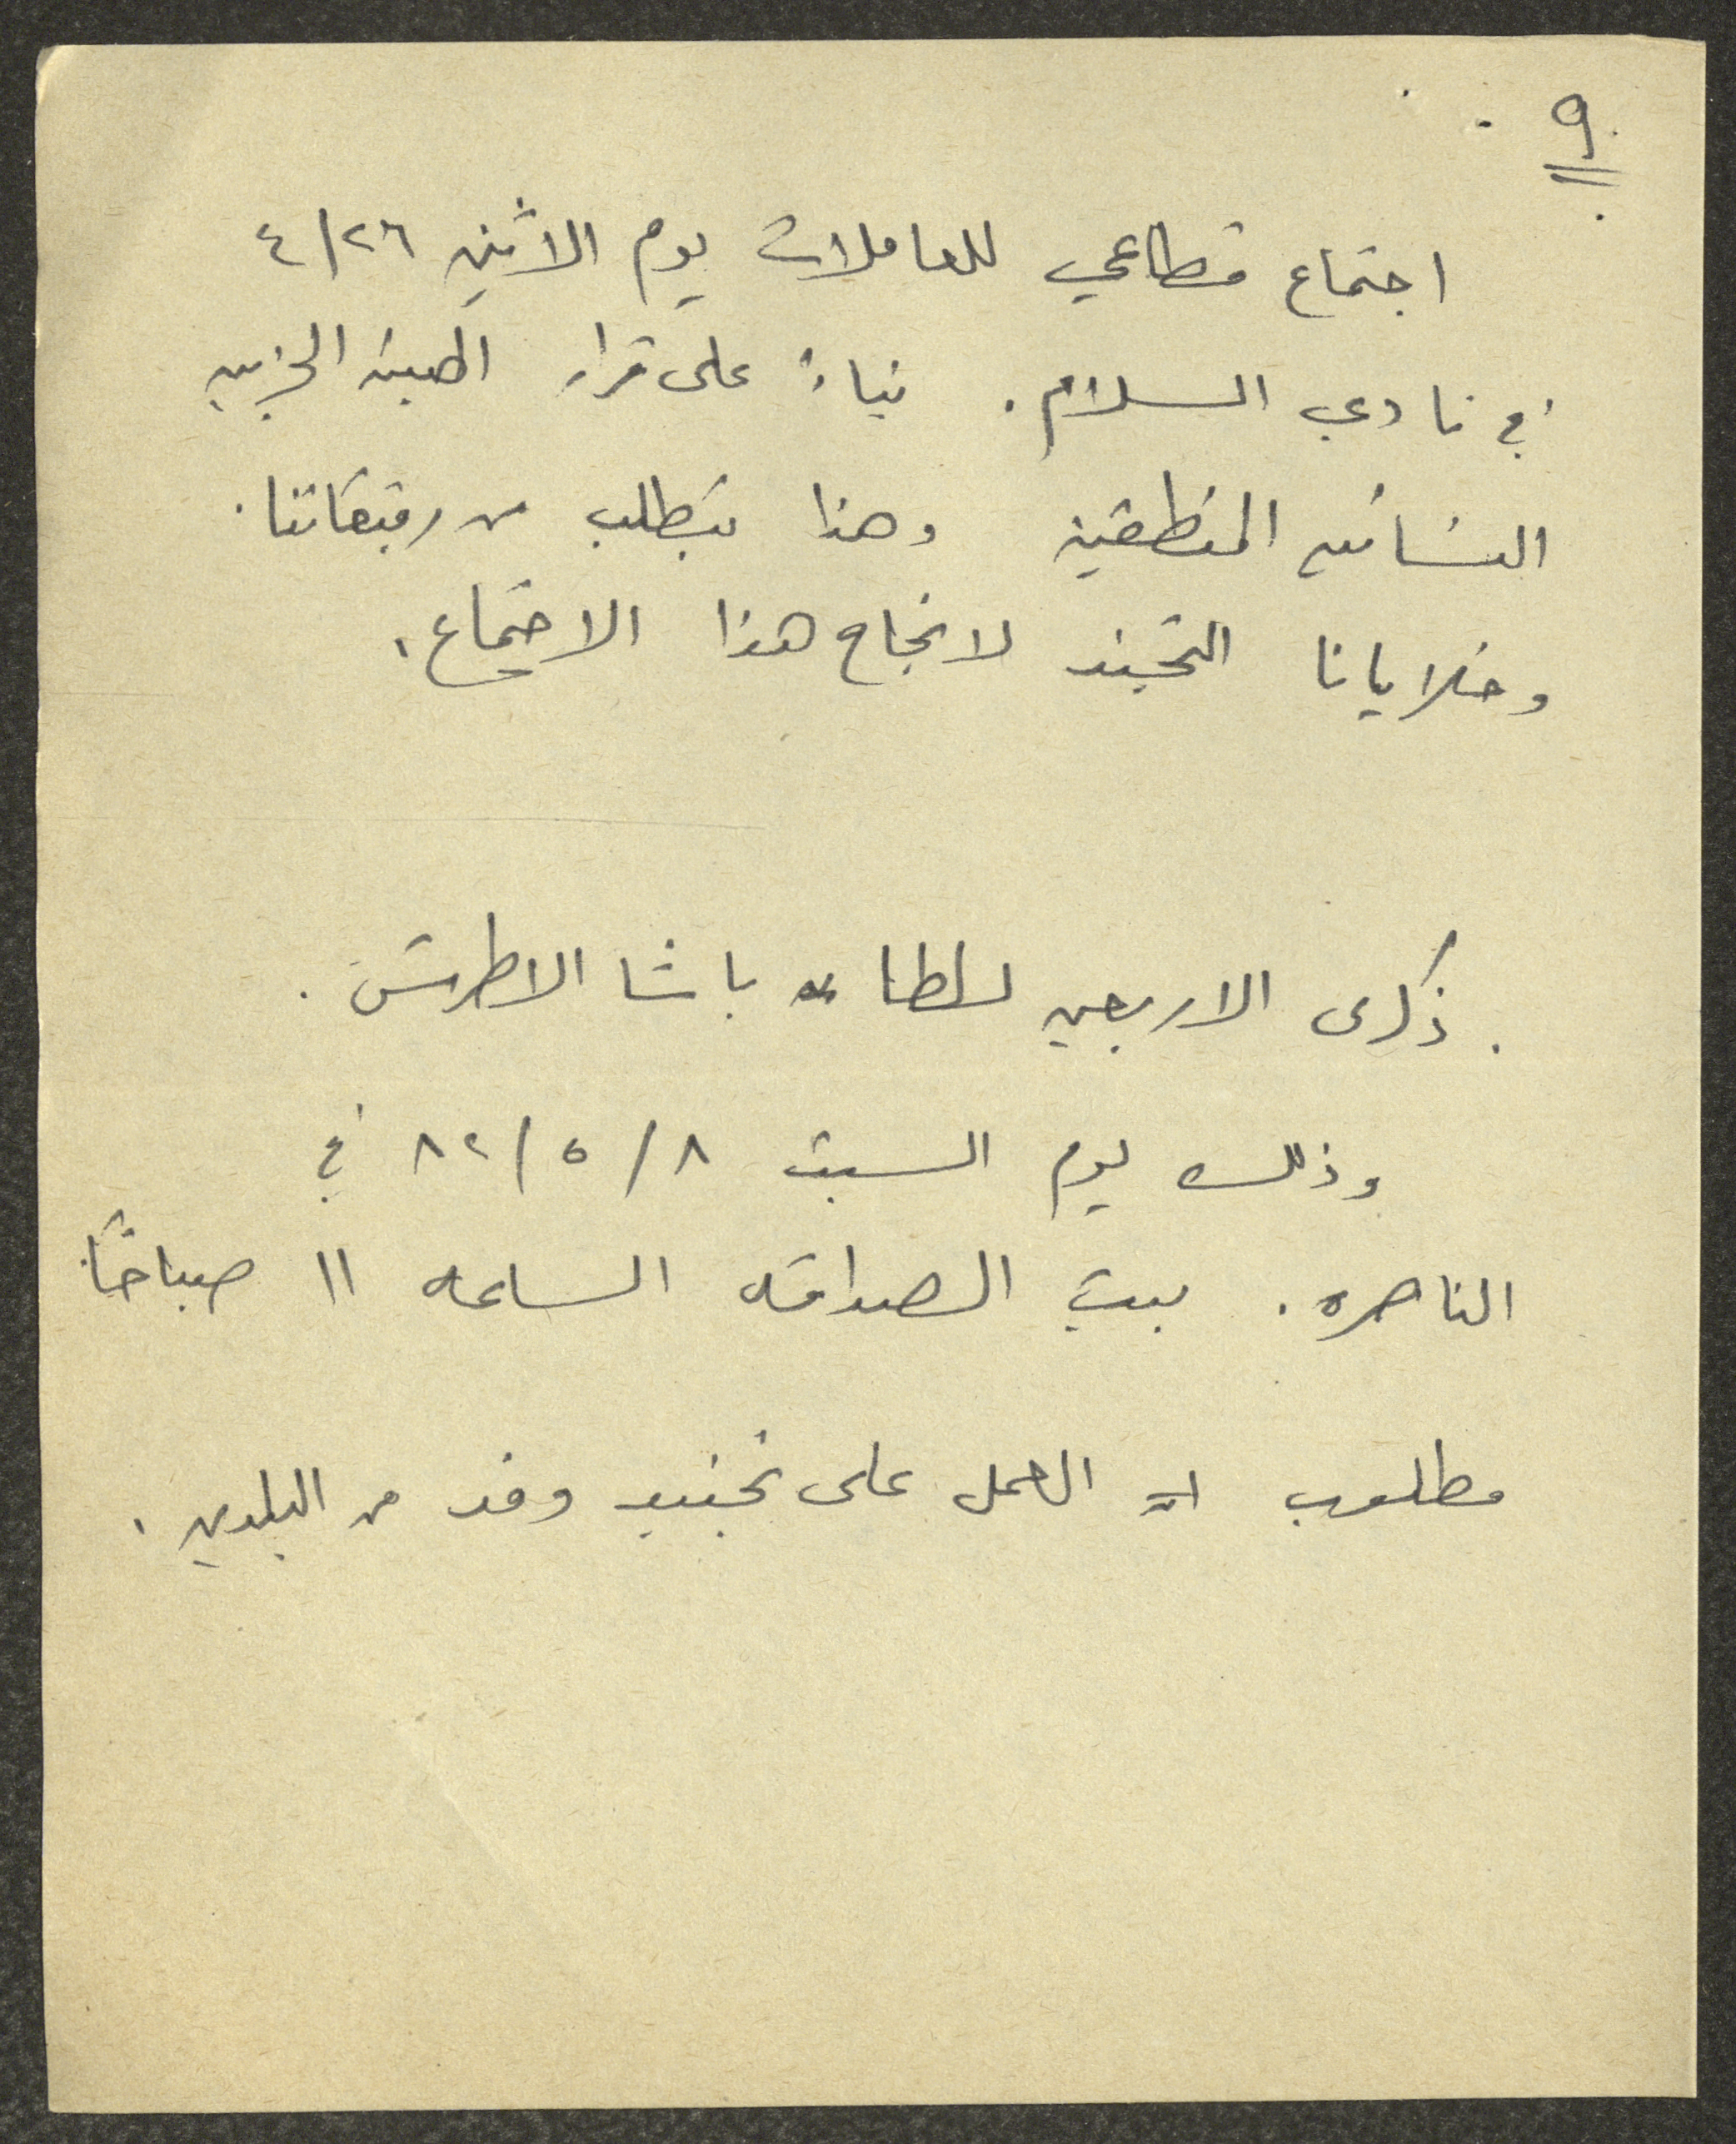 ٩
اجتماع قطاعي للعاملات يوم الاثنين ٤/٢٦
في نادي السلام. بناءً على قرار الهيئة الحزبيه
النسائيه المنطقية وهذا يتطلب من رفيقاتنا
وخلايانا التجند لانجاح هذا الاجتماع.
. ذكرى الاربعين لسلطان باشا الاطرش.
وذلك يوم السبت ٨/٥/٨٢ في
الناصره. بيت الصداقه الساعه ١١ صباحًا
مطلوب العمل على تجنيد وفد من البلدين.